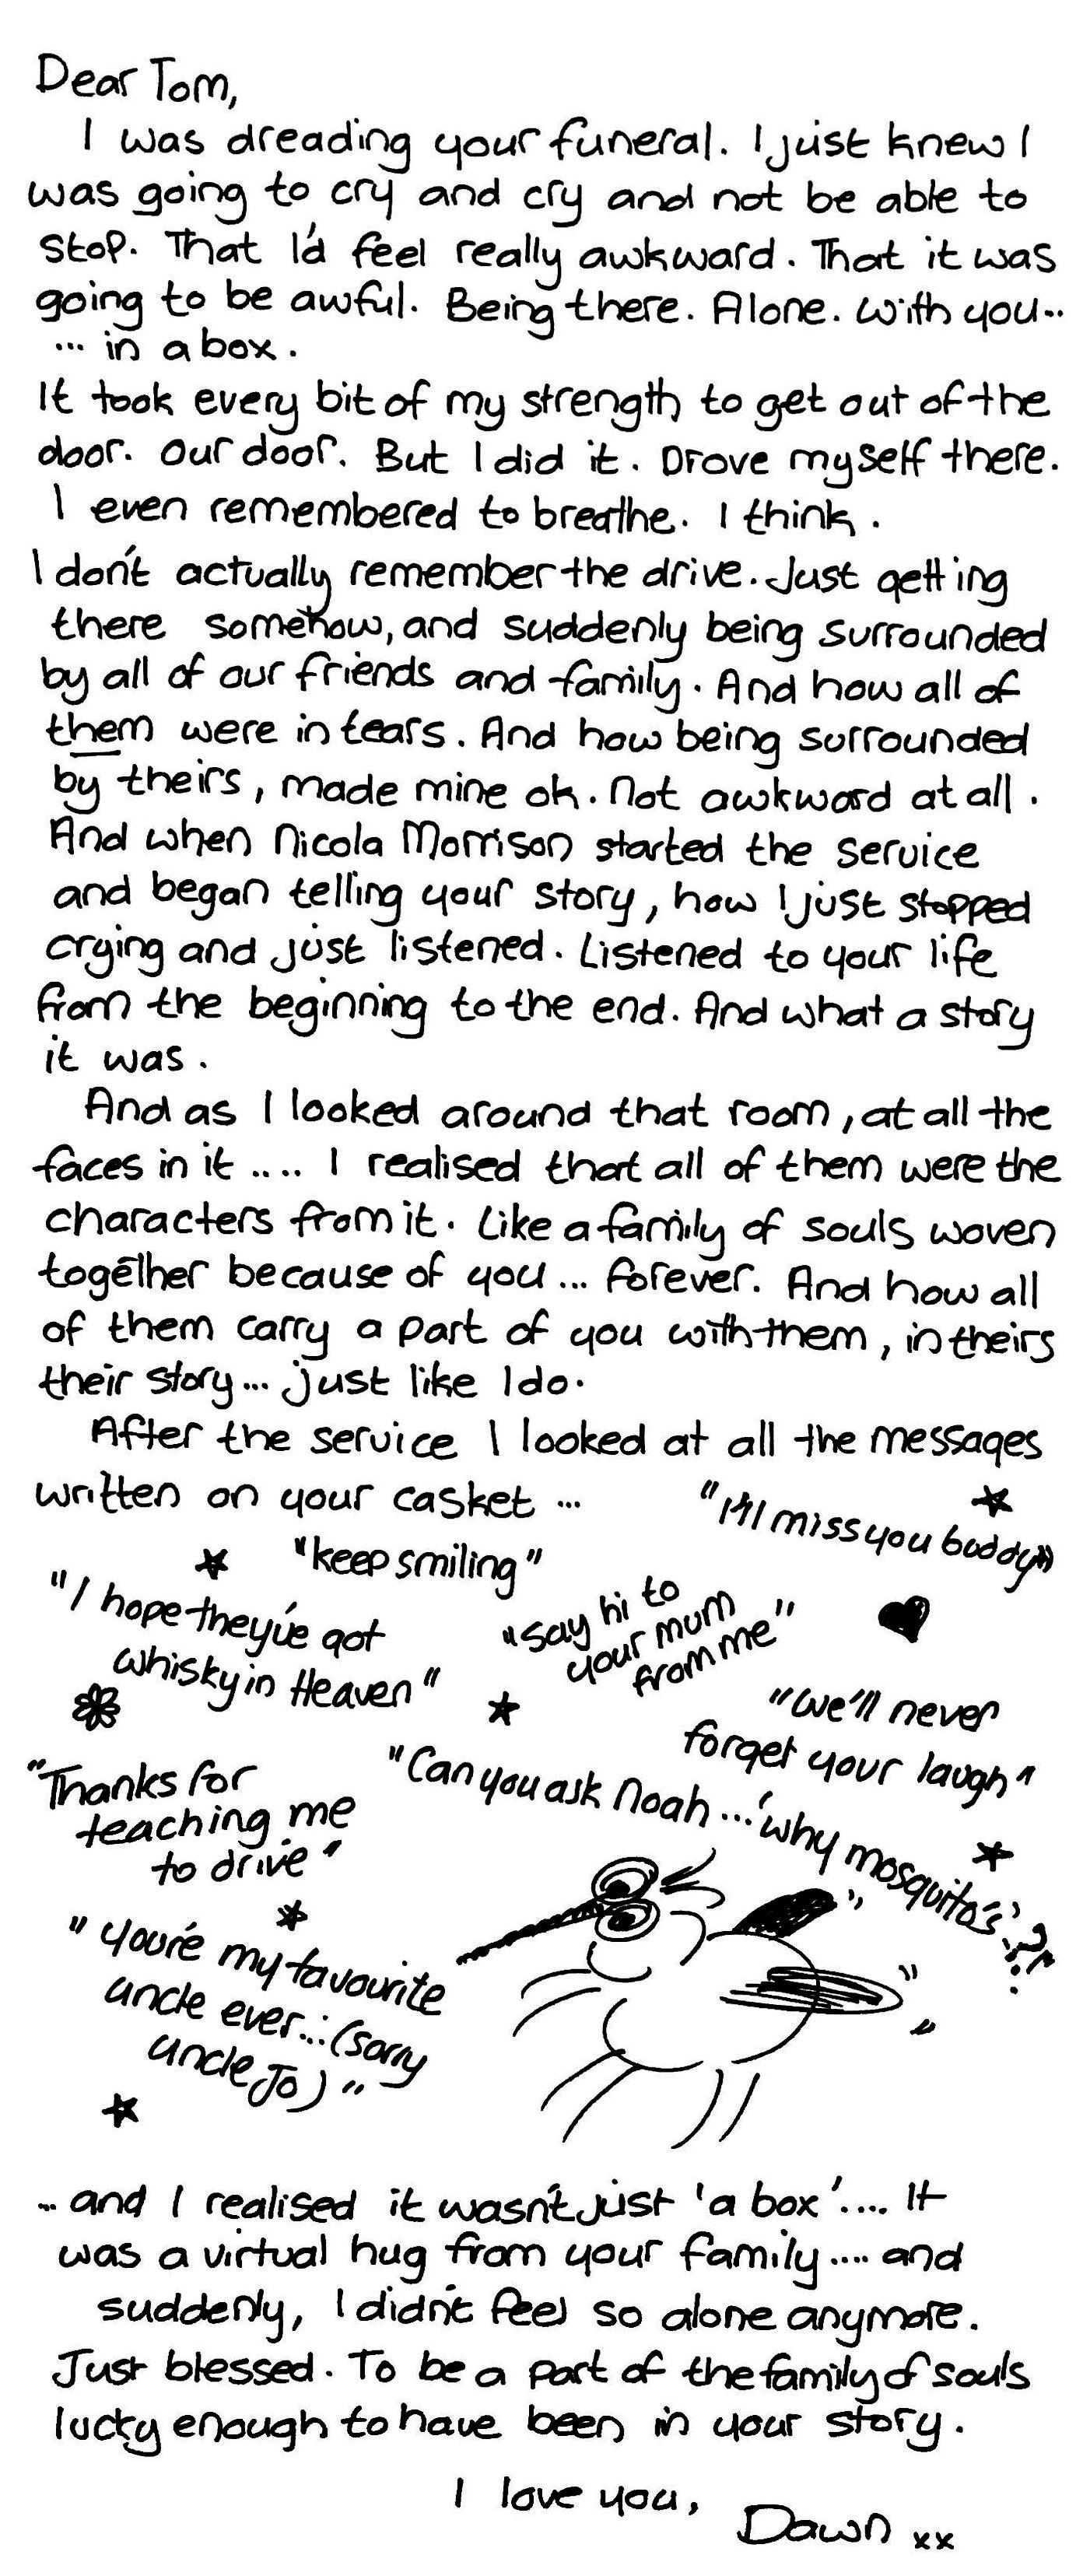 Dear Tom,
I was dreading your funeral. I just knew I
was going to cry and cry and not be able to
stop. That I'd feel really awkward. That it was
going to be awful. Being there. Alone. With you..
... in a box.
It took every bit of my strength to get out of the
door. Our door. But I did it. Drove myself there.
I even remembered to breathe. I think.
I don't actually remember the drive. Just getting
there somehow, and suddenly being surrounded
by all of our friends and family. And how all of
them were in tears. And how being surrounded
by theirs, made mine ok. Not awkward at all.
And when Nicola Morrison started the service
and began telling your story, how I just stopped
crying and just listened. Listened to your life
from the beginning to the end. And what a story
it was.
And as I looked around that room, at all the
faces in it .... I realised that all of them were the
characters from it. Like a family of souls woven
together because of you ... forever. And how all
of them carry a part of you with them, in theirs
their story ... just like I do.
After the service I looked at all the messages
written on your casket ...
"I'll miss you buddy"
"keep smiling"
"I hope they've got
whisky in Heaven"
"Say hi to
your mum
from me"
"We'll never
forget your laugh"
"Thanks for
teaching me
to drive"
"Can you ask Noah ... 'why mosquito's'?!."
"You're my favourite
uncle ever... (sorry
uncle Jo)"
... and I realised it wasn't just 'a box'.... It
was a virtual hug from your family .... and
suddenly, I didn't feel so alone anymore.
Just blessed. To be a part of the family of souls
lucky enough to have been in your story.
I love you,
Dawn xx